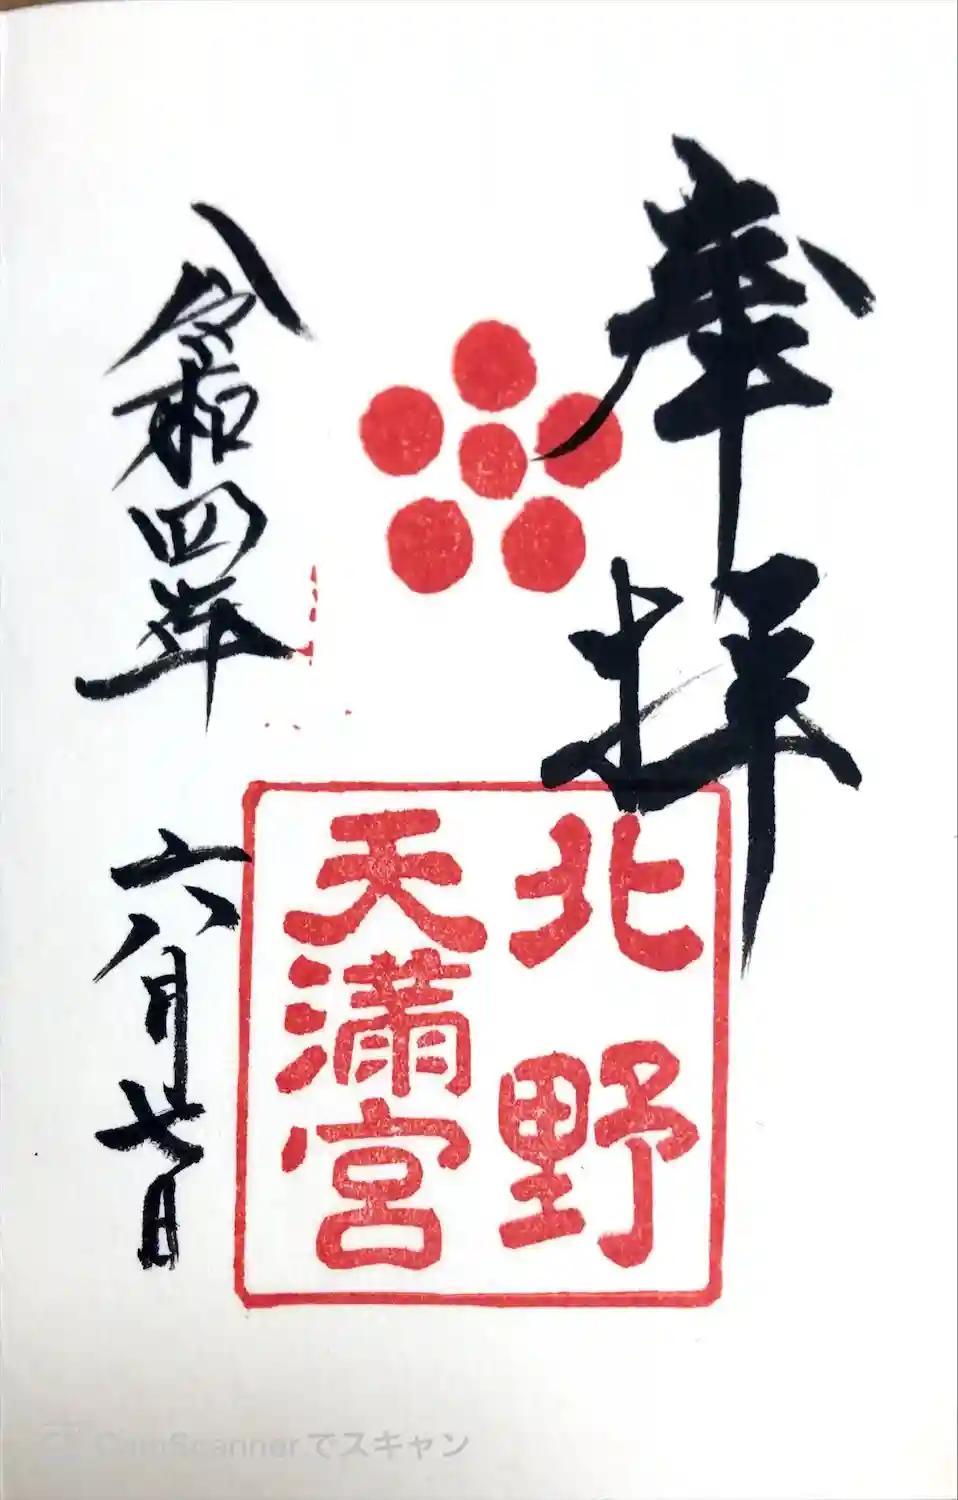 奉拝
北野
天満宮
令和四年
六月七日
CamScannerでスキャン